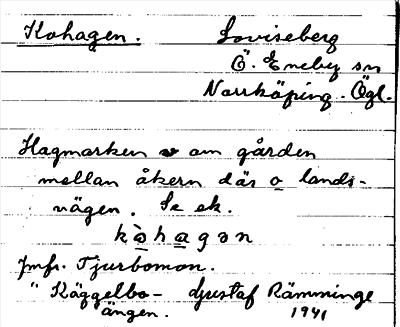 Kohagen. Loviseberg
Ö. Eneby sn
Norrköping. Ögl.
Hagmarken v om gården
mellan åkern där o lands-
vägen. Se ek.
kòhagən
Jmfr. Tjurbomon.
" Käggelbo-
ängen.
Gustaf Rämminge
1941